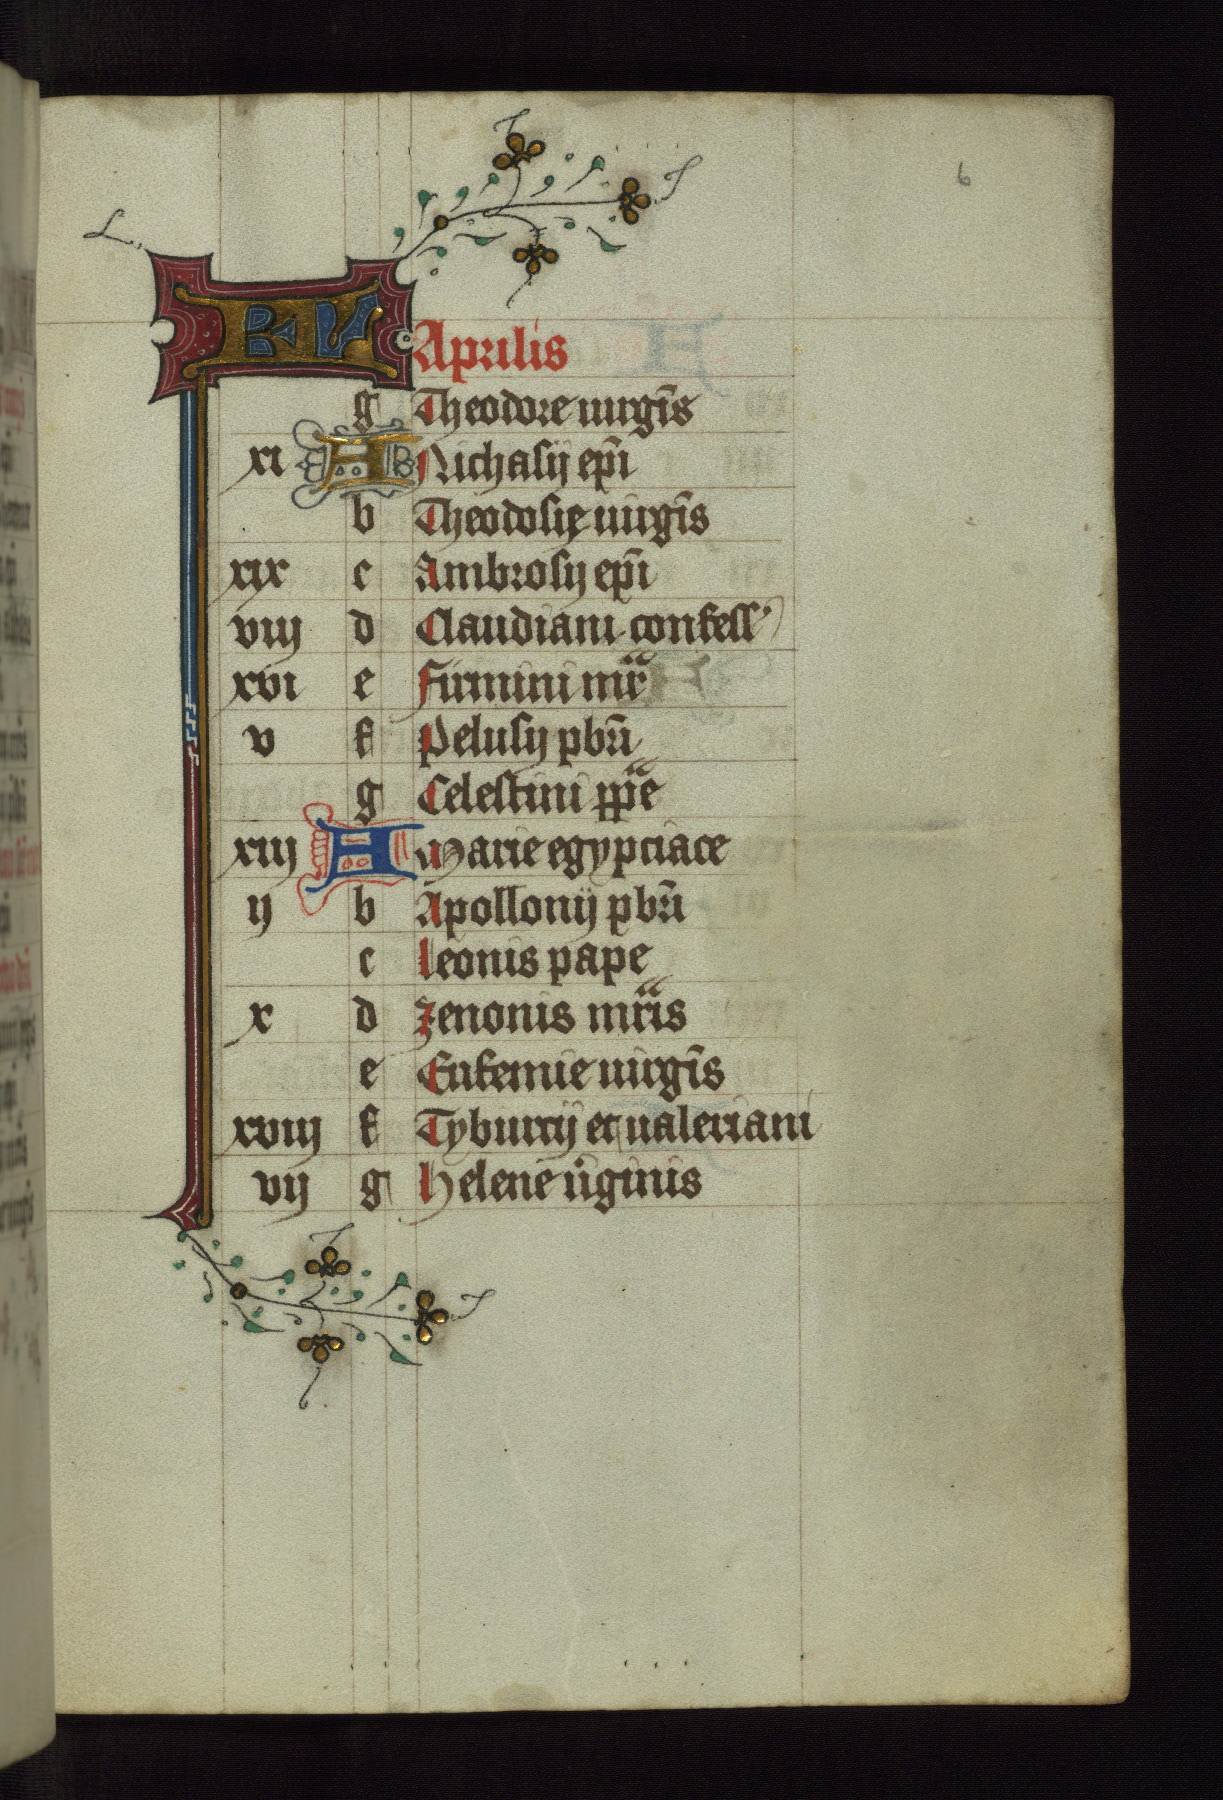 6
KL Aprilis
g Theodore uirgīs
xi A Nichasij ep̄i
b Theodosię uirgīs
xix c Ambrosij ep̄i
viij d Claudiani confess'
xvi e Firmini mr̄
v f Pelusij pbr̄i
g Celestini pp̄e
xiij A Marie egypciace
ij b Apollonij pbr̄i
c Leonis pape
x d Zenonis mr̄is
e Eufemie uirgīs
xviij f Tyburcij et ualeriani
vij g Helene u̇ginis